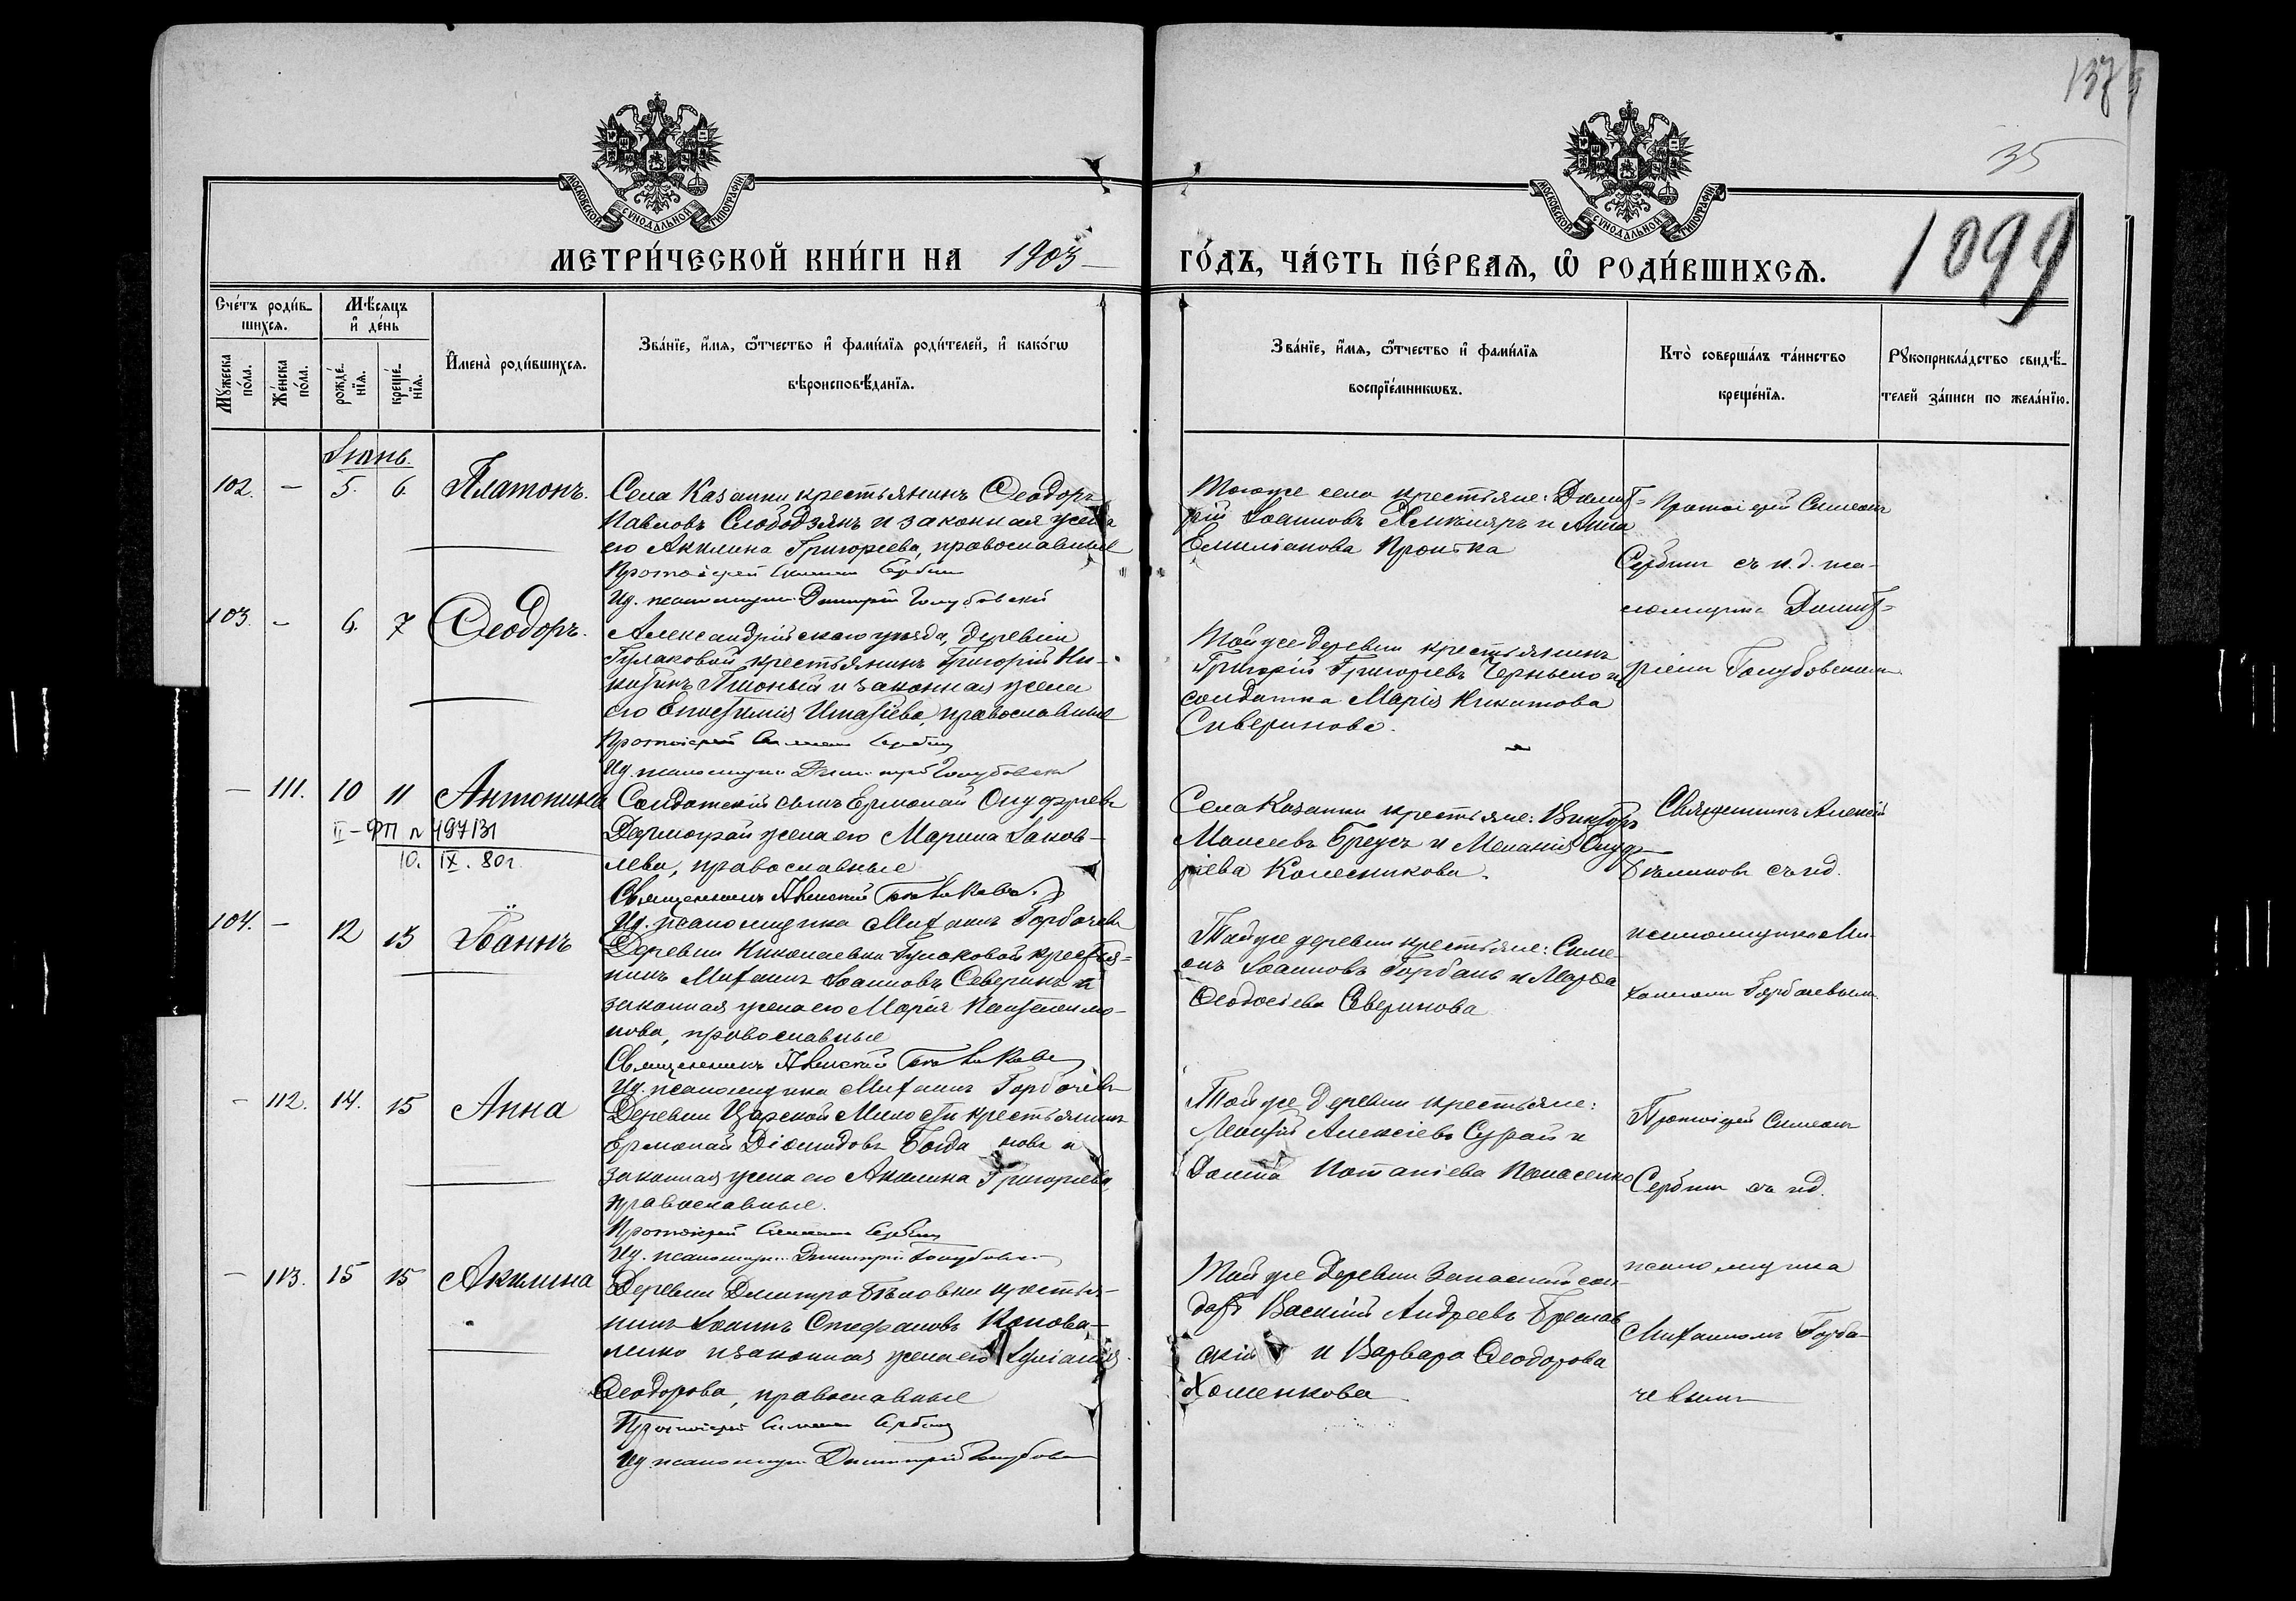 137
35
1099
МОСКОВСКОЙ СѴНОДАЛЬНОЙ ТИПОГРАФІИ
МОСКОВСКОЙ СѴНОДАЛЬНОЙ ТИПОГРАФІИ
МЕТРИ́ЧЕСКОЙ КНИ́ГИ НА 1903
ГО́ДЪ, ЧА́СТЬ ПЕ́РВАѦ, Ѽ РОДИ́ВШИХСѦ.
Сче́тъ роди́вшихсѧ.
Мѣ́сѧцъ и҆ де́нь
Мꙋ́жеска по́ла.
Же́нска по́ла.
рожде́нїѧ.
креще́нїѧ.
И҆мена̀ роди́вшихсѧ.
Зва́нїе, и҆́мѧ, ѻ҆́тчество и҆ фами́лїѧ роди́телей, и҆ како́гѡ
вѣроисповѣ́данїѧ.
Зва́нїе, и҆́мѧ, ѻ҆́тчество и҆ фами́лїѧ
воспрїе́мникѡвъ.
Кто̀ соверша́лъ та́инство
креще́нїѧ.
Рꙋкоприкла́дство свидѣ́-
телей за́писи по жела́нїю.
Іюнь.
102. — 5. 6. Платонъ.
Села Казанки крестьянинъ Ѳеодоръ
Павловъ Слободзянъ и законная жена
его Акилина Григорьева, православные
Протоіерей Симеонъ Сербинъ
Ид. псаломщика Димитрій Голубовскій
Тогоже села крестьяне: Димит-
рій Іоанновъ и Анна
Емиліанова
Протоіерей Симеонъ
Сербинъ съ и.д. пса-
ломщика Димит-
ріемъ Голубовскимъ
103. — 6. 7 Ѳеодоръ.
Александрійскаго уѣзда, деревни
Гулаковой крестьянинъ Григорій Ни-
китинъ и законная жена
его Православные
Протоіерей Симеонъ Сербинъ
Ид. псаломщика Димитрій Голубовскій
Той же деревни крестьянинъ
Григорій Григорьевъ и
солдатка Марія Никитова
Сиверинова.
— 111. 10 11 Антонина
II-ФП № 497131
10. IX. 80г.
Солдатскій сынъ Ермолай Онуфріевъ
жена его Марина Іаков-
лева, православные
Священникъ Алексій Бѣликовъ
Ид. псаломщика Михаилъ Горбачевъ
Села Казанки крестьяне: Викторъ
Моисеевъ Бреусъ и Меланія Онуф-
ріева Колесникова.
Священникъ Алексій
Бѣликовъ съ ид.
псаломщика Ми-
хаиломъ Горбачевымъ.
104. — 12 13 Іоаннъ
Деревни Николаевки Гулаковой крестья-
нинъ Михаилъ Іоанновъ Северинъ и
законная жена его Марія Пантелеимо-
нова, православные
Священникъ Алексій Бѣликовъ
Ид. псаломщика Михаилъ Горбачевъ
Той же деревни крестьяне: Симе-
онъ Іоанновъ Горбань и Марѳа
Ѳеодосіева Северинова
— 112. 14. 15 Анна
Деревни Царской Милости крестьянинъ
Ермолай Діомидовъ и
законная жена его Акилина Григорьева,
православные.
Протоіерей Симеонъ Сербинъ
Ид. псаломщика Димитрій Голубовскій
Той же деревни крестьяне:
Алексіевъ Сурай и
Домна Потапіева Панасенко
Протоіерей Симеонъ
Сербинъ съ ид.
псаломщика
Михаиломъ Горба-
чевымъ
— 113. 15 15 Акилина
Деревни Дмитро-Бѣловки крестья-
нинъ Іоаннъ Стефановъ Конова-
ленко и законная жена его Іуліанія
Ѳеодорова, православные
Протоіерей Симеонъ Сербинъ
Ид. псаломщика Димитрій Голубовскій
Той же деревни запасный сол-
датъ Василій Андреевъ
и Варвара Ѳеодорова
Хоменкова